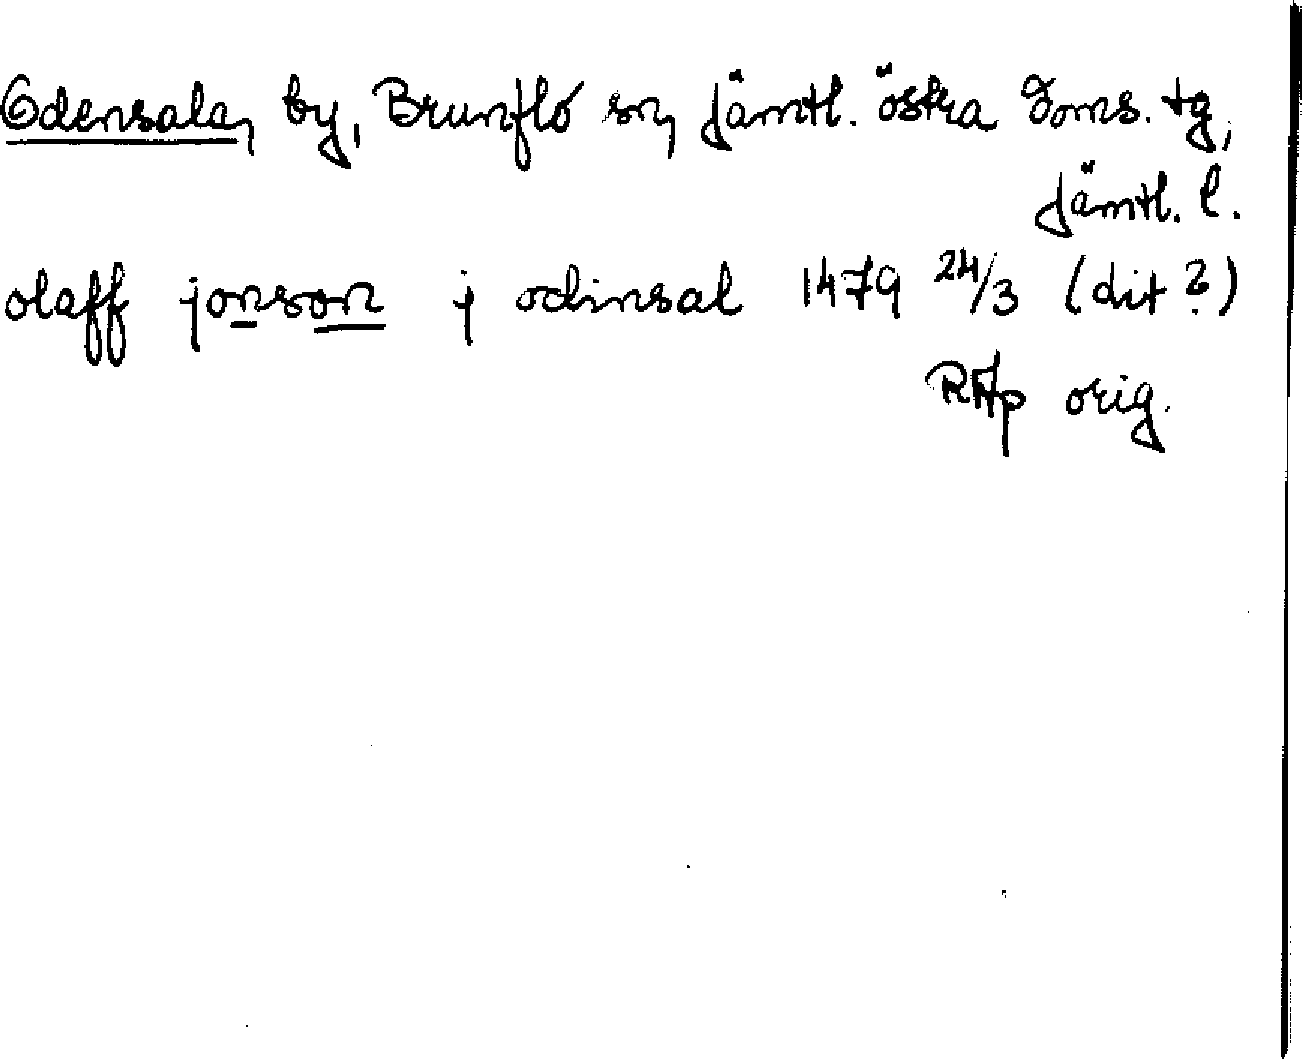 Odensala, by, Brunflo sn, Jämtl. östra Doms. tg,
Jämtl. l.
olaff jonson j odinsal 1479 24/3 (dit?)
RAp orig.